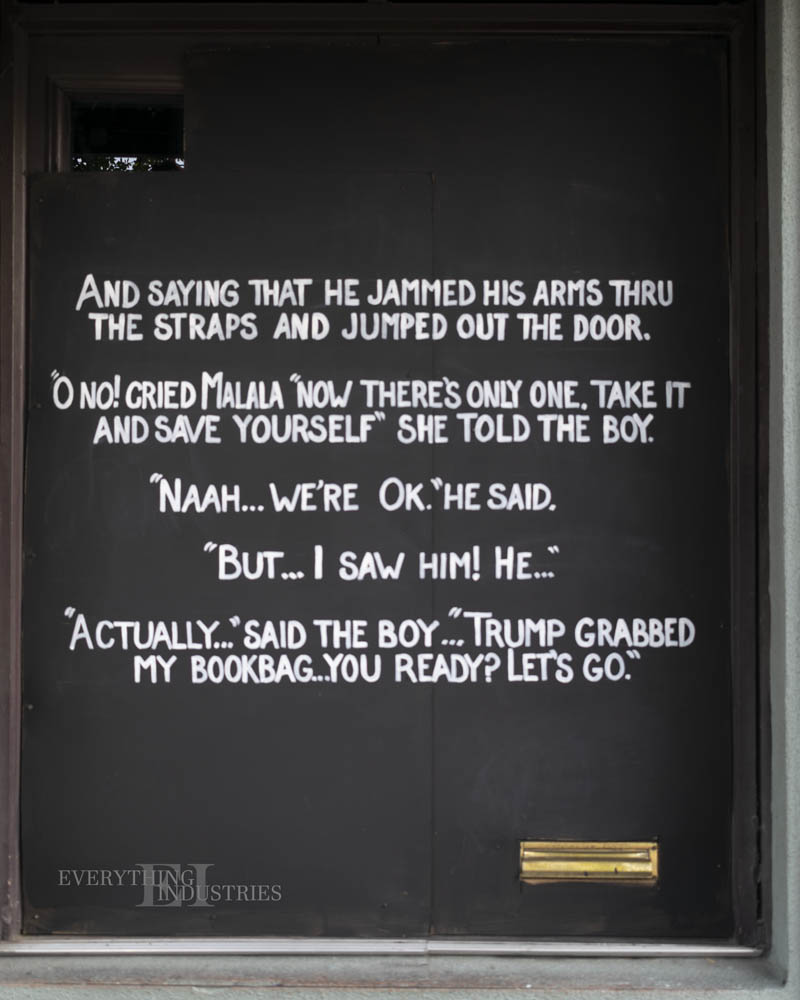 AND SAYING THAT HE JAMMED HIS ARMS THRU
THE STRAPS AND JUMPED OUT THE DOOR.
"O NO! CRIED MALALA "NOW THERE'S ONLY ONE. TAKE IT
AND SAVE YOURSELF" SHE TOLD THE BOY.
"NAAH... WE'RE OK." HE SAID.
"BUT... I SAW HIM! HE..."
"ACTUALLY..." SAID THE BOY..."TRUMP GRABBED
MY BOOKBAG...YOU READY? LET'S GO."
EVERYTHING
EI
INDUSTRIES